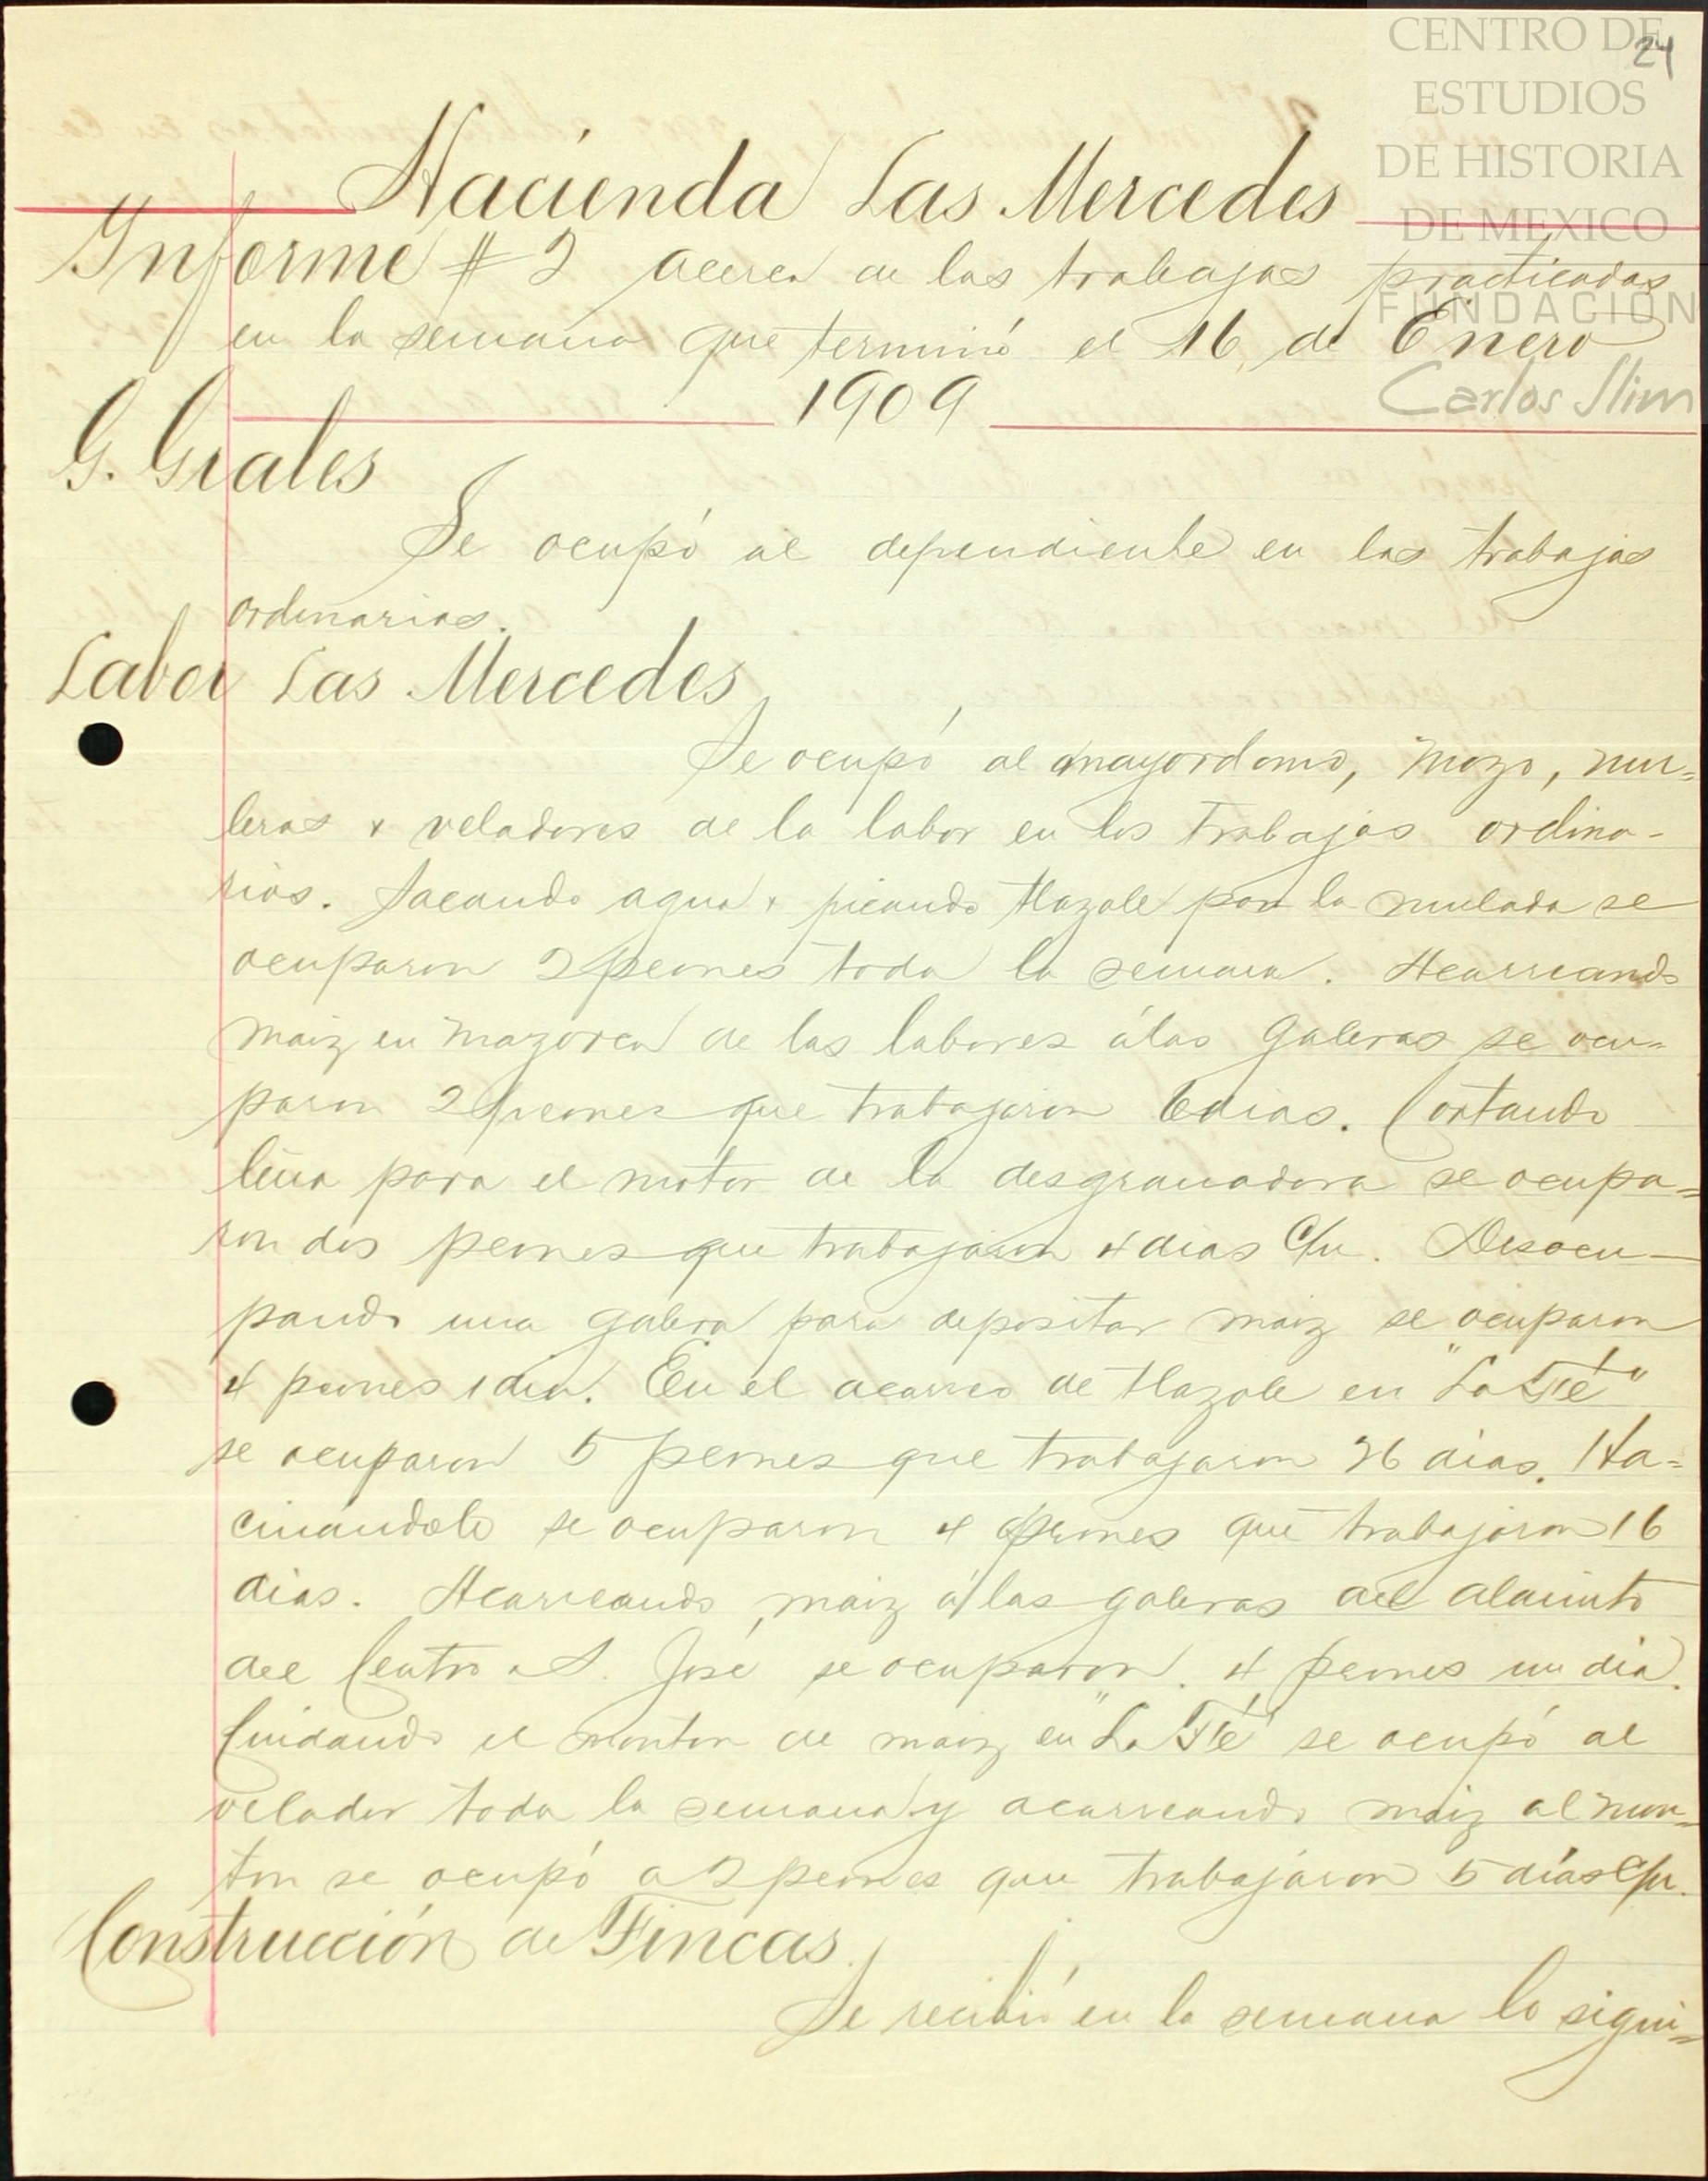 CENTRO DE
ESTUDIOS
DE HISTORIA
DE MEXICO
FUNDACIÓN
Carlos Slim
24
Hacienda Las Mercedes
Informe # 2 acerca de los trabajos practicados
en la semana que terminó el 16 de Enero
1909
G. Grales
Se ocupó al dependiente en los trabajos
ordinarios.
Labor Las Mercedes
Se ocupó al mayordomo, mozo, mu=
leros y veladores de la labor en los trabajos ordina-
rios. Sacando agua y picando tlazole para la mulada se
ocuparon 2 peones toda la semana. Acarreando
maiz en mazorca de las labores á las galeras se ocu=
paron 2 peones que trabajaron 6 dias. Cortando
leña para el motor de la desgranadora se ocupa=
ron dos peones que trabajaron 4 dias c/u. Desocu-
pando una galera para depositar maiz se ocuparon
4 peones 1 dia. En el acarreo de tlazole en "La Fé"
se ocuparon 5 peones que trabajaron 26 dias. Ha=
cinándolo se ocuparon 4 peones que trabajaron 16
dias. Acarreando maiz á las galeras del
del Centro a S. José se ocuparon 4 peones un dia.
Cuidando el monton de maiz en "La Fé" se ocupó al
velador toda la semana y acarreando maiz al mon=
ton se ocupó a 2 peones que trabajaron 5 días c/u.
Construcción de Fincas
Se recibió en la semana lo sigui=